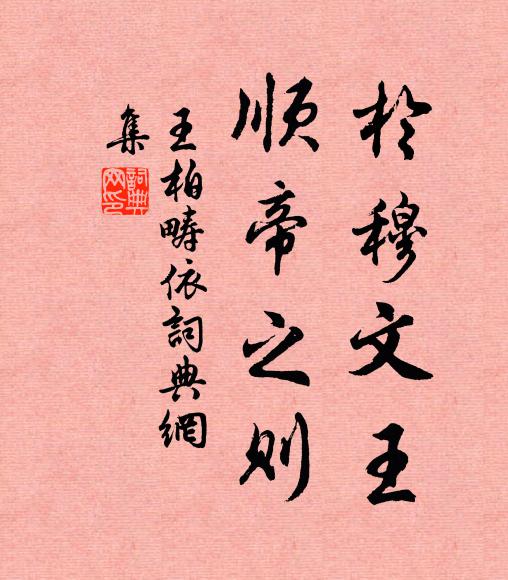 於穆文王
順帝之則
王柏疇依詞典網
集
詞典
网印